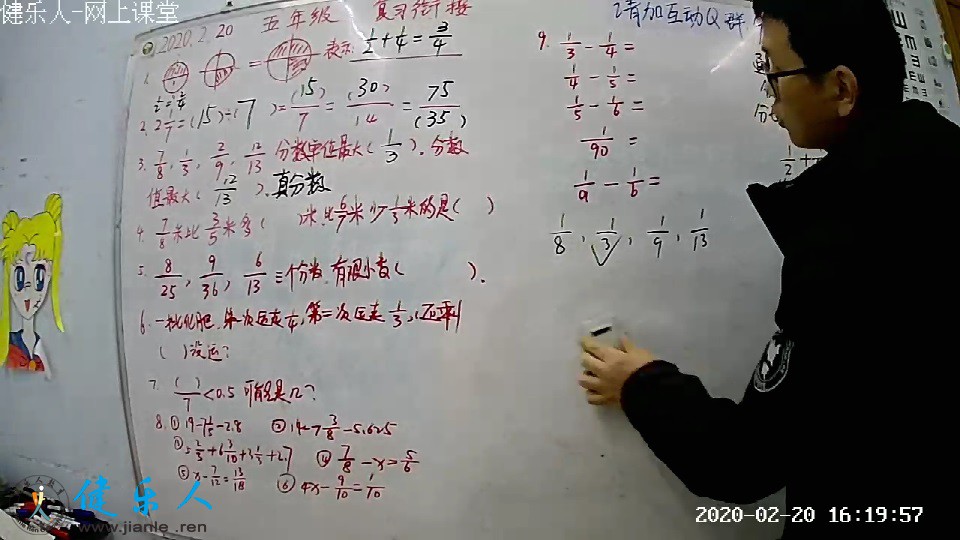 健乐人-网上课堂
2020.2.20 五年级 复习衔接
请加互动Q群
1. 表示 1/2+1/4=3/4
2. 2 1/7=(15)÷(7)=(15)/7=(30)/14=75/(35)
3. 7/8, 1/3, 2/9, 12/13 分数单位最大(1/3). 分数
值最大(12/13). 真分数
4. 7/8米比3/5米多( )米, 比6/7米少1/3米的是( )
5. 8/25, 9/36, 6/13 三个分数, 有限小数( ).
6. 一批化肥, 第一次运走1/4, 第二次运走1/3, 还剩
( )没运?
7. ( )/7<0.5 可能是几?
8. ① 19-7 1/5-2.8 ② 14-7 3/8-5.625
④ 7/8-x=5/6
⑤ x-7/12=13/18 ⑥ 4x-9/10=1/10
9. 1/3-1/4=
1/4-1/5=
1/5-1/6=
1/90=
1/a-1/b=
1/8, 1/3, 1/9, 1/13
健乐人
www.jianle.ren
2020-02-20 16:19:57